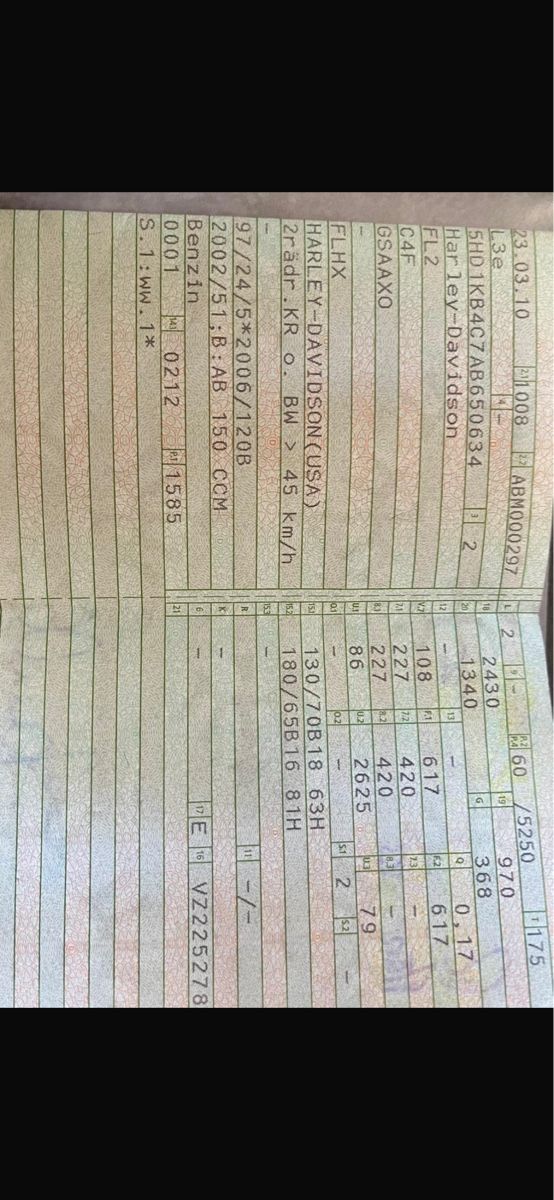 23.03.10 2.1 1008 2.2 ABM000297
L3e 4 -
5HD1KB4C7AB650634 3 2
Harley-Davidson
FL2
C4F
GSAAXO
-
FLHX
HARLEY-DAVIDSON(USA)
2rädr.KR o. BW > 45 km/h
-
97/24/5*2006/120B
2002/51;B:AB 150 CCM
Benzin
0001 14.1 0212 P.1 1585
S.1:ww.1*
L 2 9 - P.2 P.4 60 /5250 T 175
18 2430 19 970
20 1340 G 368
12 - 13 - Q 0,17
V.7 108 F.1 617 F.2 617
7.1 227 7.2 420 7.3 -
8.1 227 8.2 420 8.3 -
U.1 86 U.2 2625 U.3 79
O.1 - O.2 - S.1 2 S.2 -
15.1 130/70B18 63H
15.2 180/65B16 81H
15.3 -
R 11 -/-
K -
6 - 17 E 16 VZ225278
21